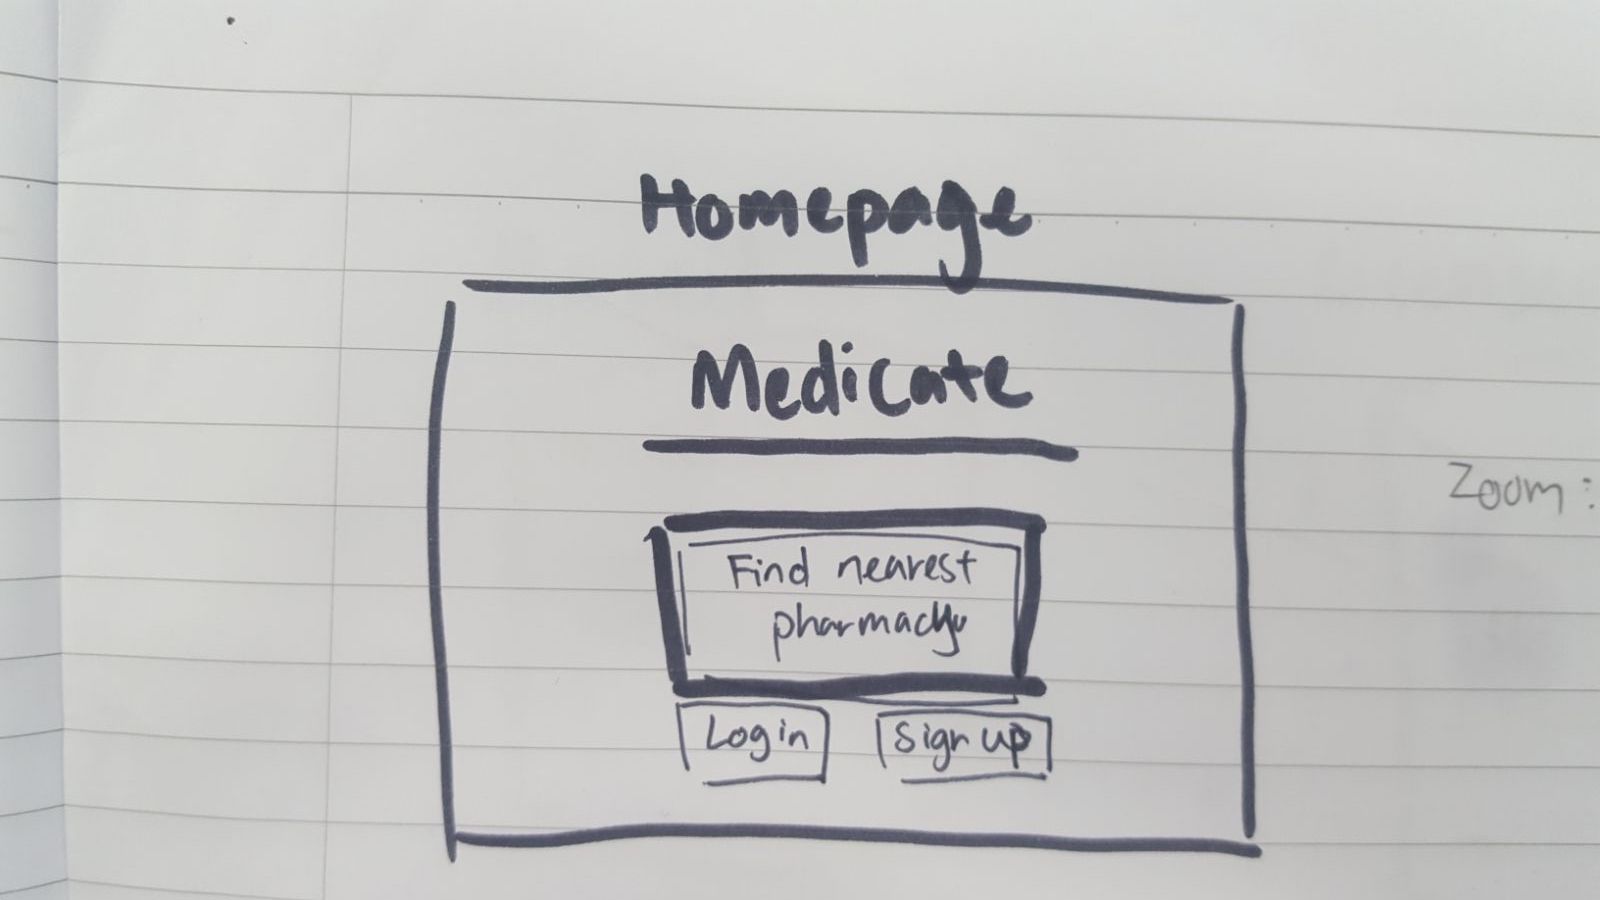 Homepage
Medicate
Find nearest
pharmacy
Login
Sign up
Zoom: